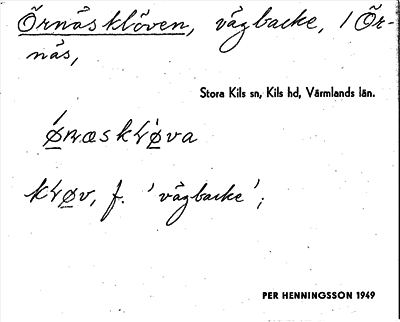 Örnäsklöven, vägbacke, / Ör-
näs,
Stora Kils sn, Kils hd, Värmlands län.
ǿnæskɬǿva
kɬøv, f. 'vägbacke';
PER HENNINGSSON 1949